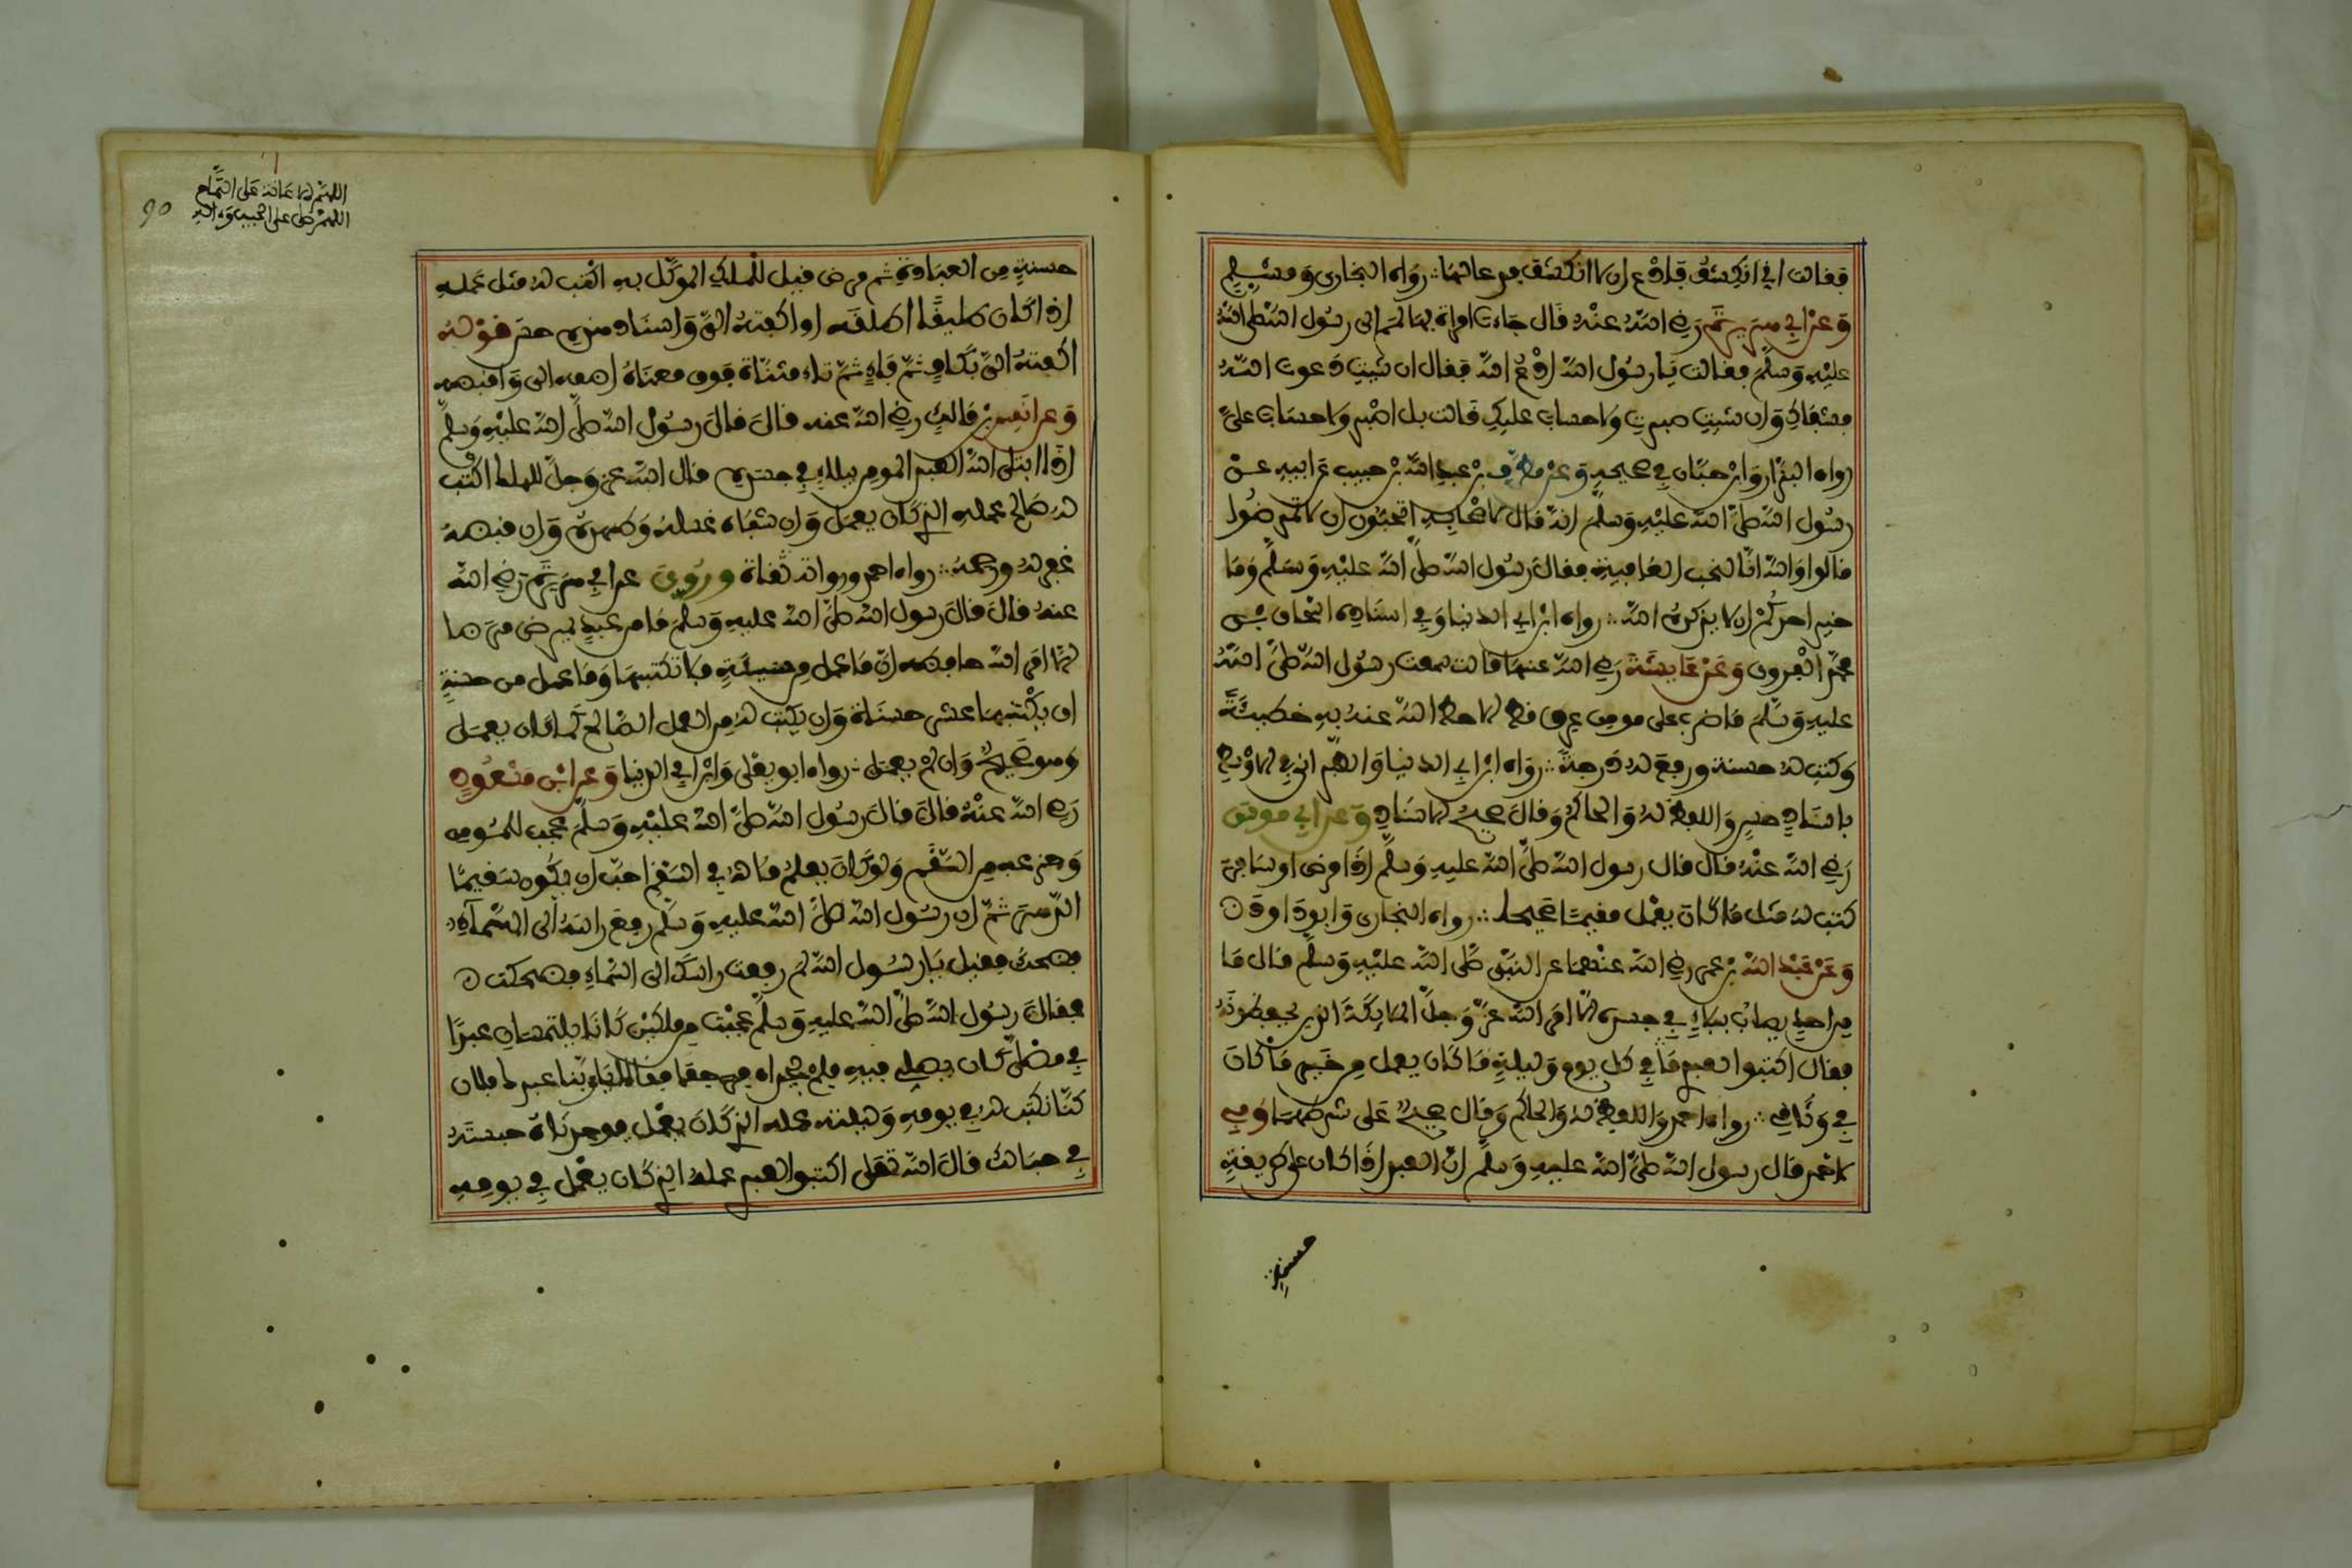 فقالت اني انكشف فادع ان لا انكشف فدعا لها ∴ رواه البخاري ومسلم
وعن ابي هريرة رضي الله عنه قال جاءت امراة بها لمم الى رسول الله صلى الله
عليه وسلم فقالت يا رسول الله ادع الله فقال ان شيت دعوت الله
فشفاك وان شيت صبرت ولا حساب عليك قالت بل اصبر ولا حساب علي
رواه البزار وابن حبان في صحيحه وعن مطرف بن عبد الله بن حبيب عن ابيه عن
رسول الله صلى الله عليه وسلم انه قال لاصحابه اتحبون ان لا تمرضوا
قالوا والله انا لنحب العافية فقال رسول الله صلى الله عليه وسلم وما
خير احدكم ان لا يذكره الله ∴ رواه ابن ابي الدنيا وفي اسناده اسحاق بن
محمد الفروي وعن عايشة رضي الله عنها قالت سمعت رسول الله صلى الله
عليه وسلم ما ضرب على مومن عرق قط الا حط الله عنه به خطيئة
وكتب له حسنة ورفع له درجة ∴ رواه ابن ابي الدنيا والطبراني في الاوسط
باسناد حسن واللفظ له والحاكم وقال صحيح الاسناد وعن ابي موسى
رضي الله عنه قال قال رسول الله صلى الله عليه وسلم اذا مرض او سافر
كتب له مثل ما كان يعمل مقيما صحيحا ∴ رواه البخاري وابو داوود
وعن عبد الله بن عمر رضي الله عنهما عن النبي صلى الله عليه وسلم قال ما
من احد يصاب ببلاء في جسده الا امر الله عز وجل الملايكة الذين يحفظونه
فقال اكتبوا لعبدي ما في كل يوم وليلة ما كان يعمل من خير ما كان
في وثاقي ∴ رواه احمد واللفظ له والحاكم وقال صحيح على شرطهما وفي
لاحمد قال رسول الله صلى الله عليه وسلم ان العبد اذا كان على طريقة
حسنة
اللهم الاعانة على التمام
اللهم صل على الحبيب وءاله
90
حسنة من العبادة ثم مرض قيل للملك الموكل به اكتب له مثل عمله
اذا كان طليقا اطلقه او اكفته الي واسناده حسن قوله
اكفته الي بكاف ثم فاء ثم تاء مثناة فوق معناه اضمه الى واقبضه
وعن انس بن مالك رضي الله عنه قال قال رسول الله صلى الله عليه وسلم
اذا ابتلى الله العبد المومن ببلاء في جسده قال الله عز وجل للملك اكتب
له صالح عمله الذي كان يعمل وان شفاه غسله وطهره وان قبضه
غفر له ورحمه ∴ رواه احمد ورواته ثقاة وروي عن ابي هريرة رضي الله
عنه قال قال رسول الله صلى الله عليه وسلم ما من عبد يمرض مرضا
الا امر الله حافظه ان ما عمل من سيئة فلا تكتبها وما عمل من حسنة
ان يكتبها عشر حسنات وان يكتب له من العمل الصالح كما كان يعمل
وهو صحيح وان لم يعمل ∴ رواه ابو يعلى وابن ابي الدنيا وعن ابن مسعود
رضي الله عنه قال قال رسول الله صلى الله عليه وسلم عجب للمومن
وجزعه من السقم ولو كان يعلم ما له في السقم احب ان يكون سقيما
الدهر ثم ان رسول الله صلى الله عليه وسلم رفع راسه الى السماء
فضحك فقيل يا رسول الله لم رفعت راسك الى السماء فضحكت
فقال رسول الله صلى الله عليه وسلم عجبت من ملكين كانا يلتمسان عبدا
في مصلى كان يصلي فيه فلم يجداه فرجعا فقالا يا ربنا عبدك فلان
كنا نكتب له في يومه وليلته عمله الذي كان يعمل فوجدناه حبسته
في حبالك قال الله تعلى اكتبوا لعبدي عمله الذي كان يعمل في يومه